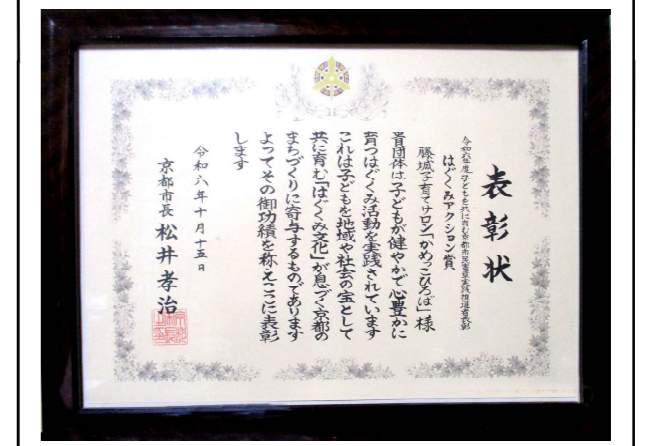 表彰状
令和六年度子どもを共に育む京都市民憲章実践推進者表彰
はぐくみアクション賞
藤城子育てサロン「かめっこひろば」様
貴団体は子どもが健やかで心豊かに
育つはぐくみ活動を実践されています
これは子どもを地域や社会の宝として
共に育む「はぐくみ文化」が息づく京都の
まちづくりに寄与するものであります
よってその御功績を称えここに表彰
します
令和六年十月十五日
京都市長 松井孝治